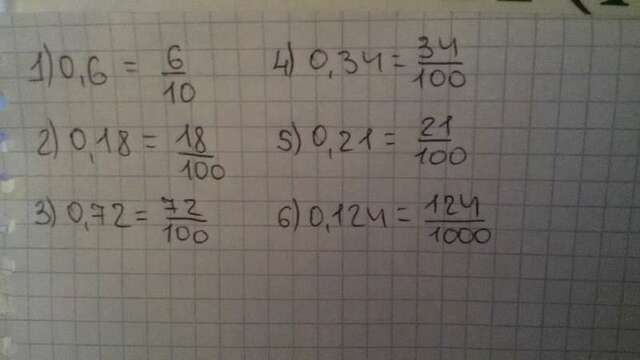 1) 0,6 = 6/10
2) 0,18 = 18/100
3) 0,72 = 72/100
4) 0,34 = 34/100
5) 0,21 = 21/100
6) 0,124 = 124/1000